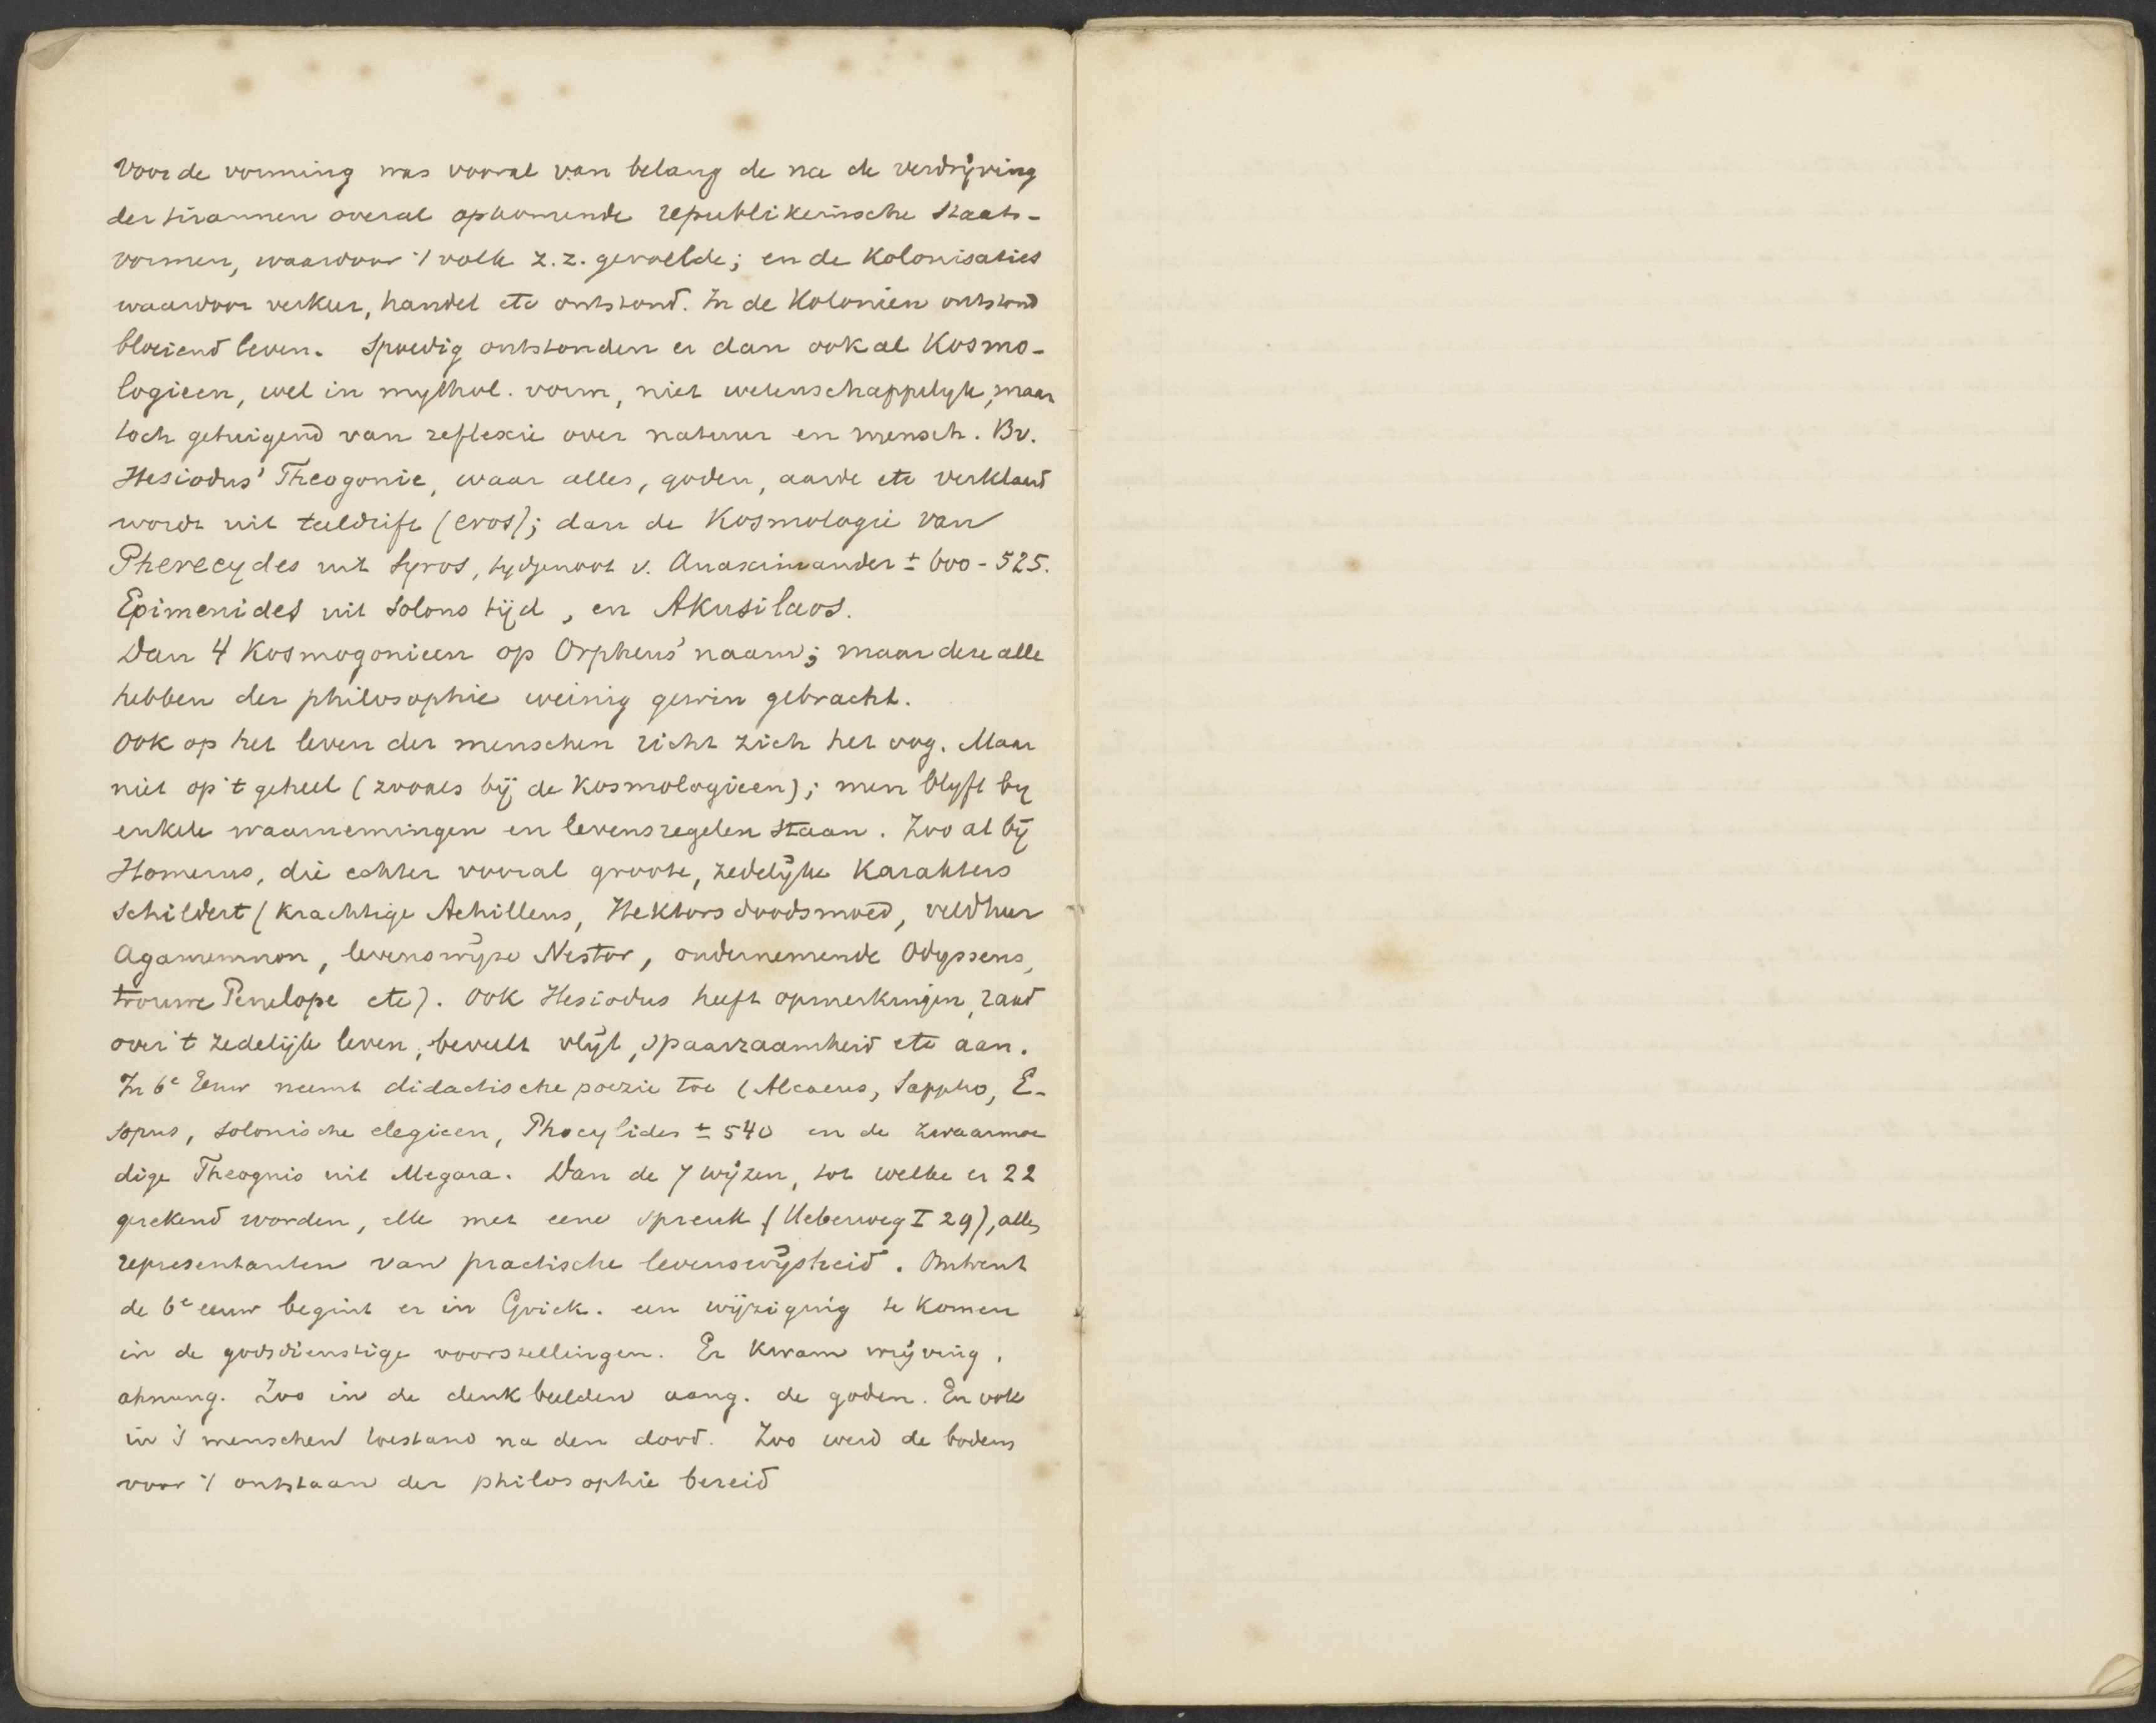 Voor de vorming was vooral van belang de na de verdrijving
der tirannen overal opkomende republikeinsche staats-
vormen, waardoor 't volk z.z. gevoelde; en de Kolonisaties
waardoor verkeer, handel etc ontstond. In de Kolonien ontstond
bloeiend leven. Spoedig ontstonden er dan ook al Kosmo-
logieen, wel in mythol. vorm, niet wetenschappelyk, maar
toch getuigend van reflexie over natuur en mensch. Bv.
Hesiodus' Theogonie, waar alles, goden, aarde etc verklaard
wordt uit teeldrift (eros); dan de Kosmologie van
Pherecydes uit Syros, tydgenoot v. Anaximander ± 600-525.
Epimenides uit Solons tijd, en Akusilaos.
Dan 4 Kosmogonieen op Orpheus' naam; maar deze alle
hebben der philosophie weinig gewin gebracht.
Ook op het leven der menschen richt zich het oog. Maar
niet op 't geheel (zooals bij de Kosmologieen); men blyft by
enkele waarnemingen en levensregelen staan. Zoo al bij
Homerus, die echter vooral groote, zedelijke Karakters
schildert (krachtige Achilleus, Hektors doodsmoed, veldheer
Agamemnon, levenswijze Nestor, ondernemende Odysseus,
trouwe Penelope etc). Ook Hesiodus heeft opmerkingen, raad
over 't zedelijk leven, beveelt vlijt, spaarzaamheid etc aan.
In 6e Eeuw neemt didactische poezie toe (Alcaeus, Sappho, E-
sopus, solonische elegieen, Phocylides ± 540 en de zwaarmoe
dige Theognis uit Megara. Dan de 7 wijzen, tot welke er 22
gerekend worden, elk met eene spreuk (Ueberweg I 29), alles
representanten van practische levenswijsheid. Omtrent
de 6e eeuw begint er in Griek. een wijziging te komen
in de godsdienstige voorstellingen. Er kwam wrijving,
ahnung. Zoo in de denkbeelden aang. de goden. En ook
in 's menschen toestand na den dood. Zoo werd de bodem
voor 't ontstaan der philosophie bereid